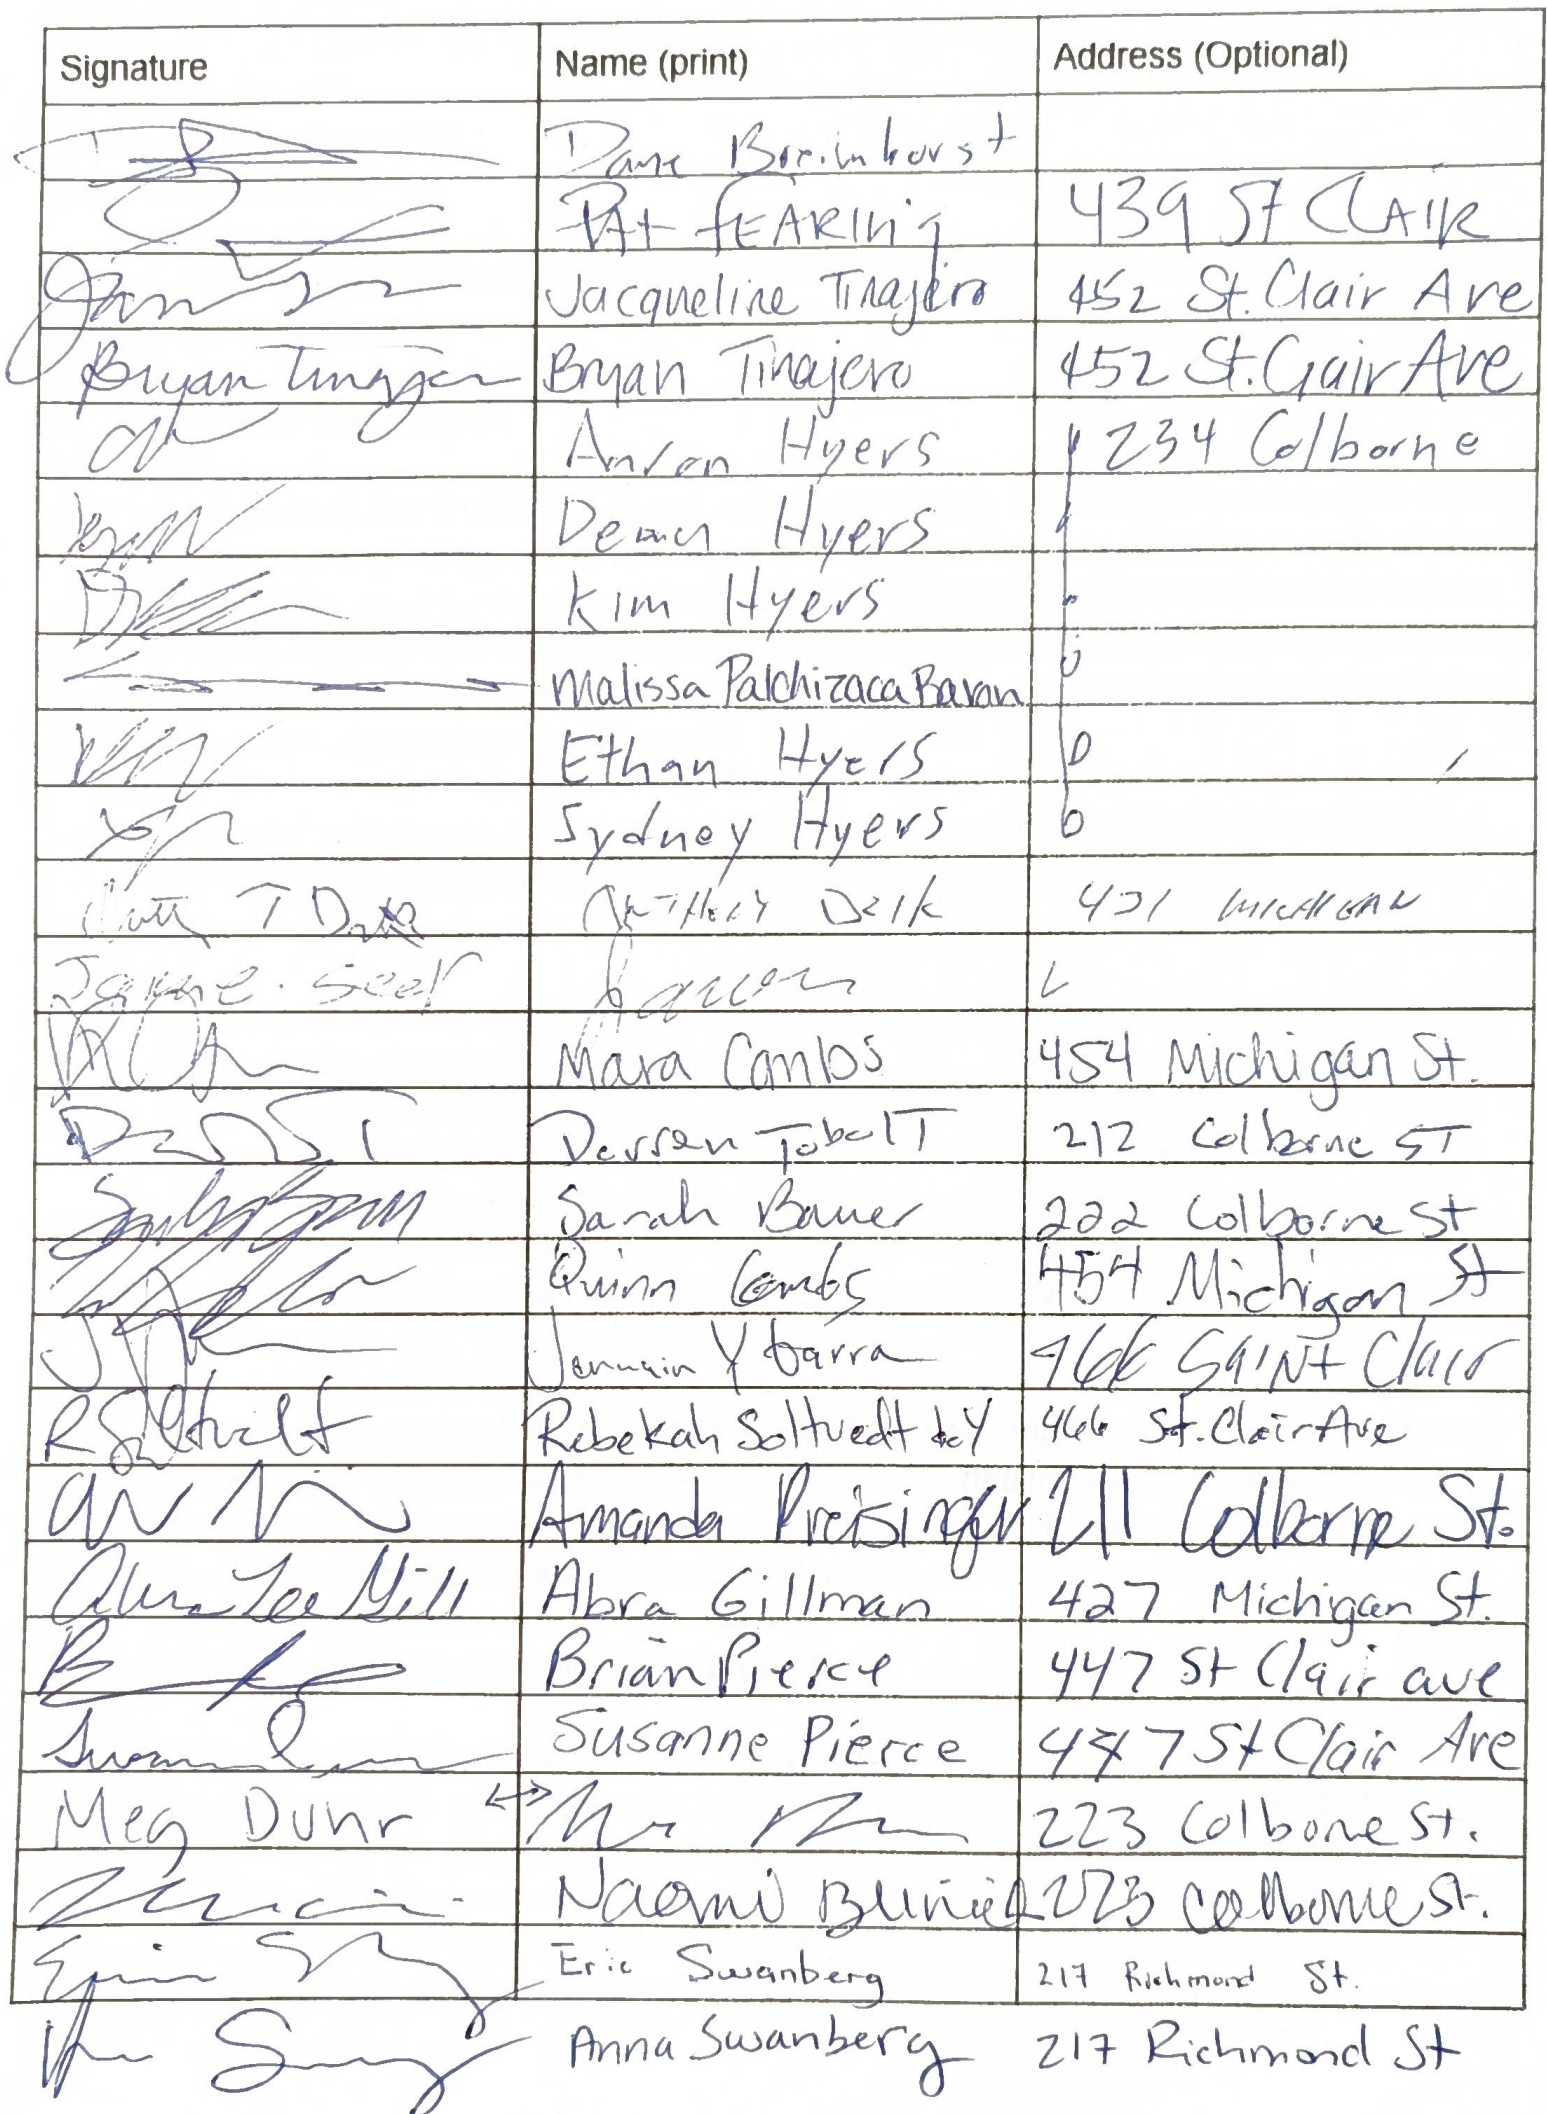 Signature Name (print) Address (Optional)
Dane Breimhorst
PAt fEARINg 439 St CLAIR
Jacqueline Tinajero 452 St. Clair Ave
Bryan Tinajero Bryan Tinajero 452 St. Clair Ave
Aaron Hyers 234 Colborne
Hyers
Kim Hyers
Malissa Palchizaca Baran
Ethan Hyers
Sydney Hyers
431 MICHIGAN
Jayne Seer
Mara Combs 454 Michigan St.
Darren TobolT 212 Colborne ST
Sarah Bauer 222 Colborne St
Quinn Combs 454 Michigan St
Jermain Ybarra 466 SAINt Clair
Rebekah Soltvedt de Y 466 St. Clair Ave
Amanda Preisinger 211 Colborne St.
Abra Gillman 427 Michigan St.
Brian Pierce 447 St Clair ave
Susanne Pierce 447 St Clair Ave
Meg Duhr ↔ 223 Colborne St.
Naomi 223 Colborne St.
Eric Swanberg 217 Richmond St.
Anna Swanberg 217 Richmond St